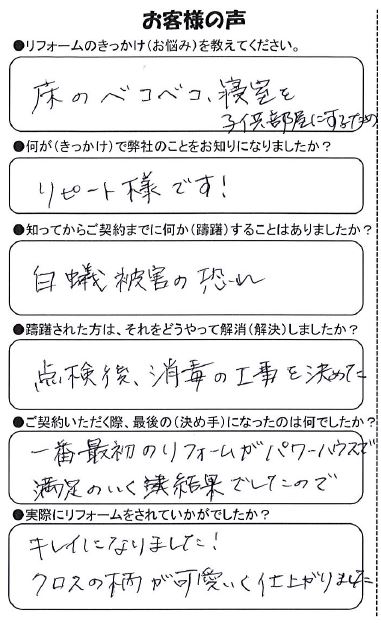 お客様の声
●リフォームのきっかけ(お悩み)を教えてください。
床のベコベコ、寝室を
子供部屋にするため
●何が(きっかけ)で弊社のことをお知りになりましたか？
リピート様です!
●知ってからご契約までに何か(躊躇)することはありましたか？
白蟻被害の恐れ
●躊躇された方は、それをどうやって解消(解決)しましたか？
点検後、消毒の工事を決めた
●ご契約いただく際、最後の(決め手)になったのは何でしたか？
一番最初のリフォームがパワーハウスで
満足のいく結果でしたので
●実際にリフォームをされていかがでしたか？
キレイになりました!
クロスの柄が可愛いく仕上がりました